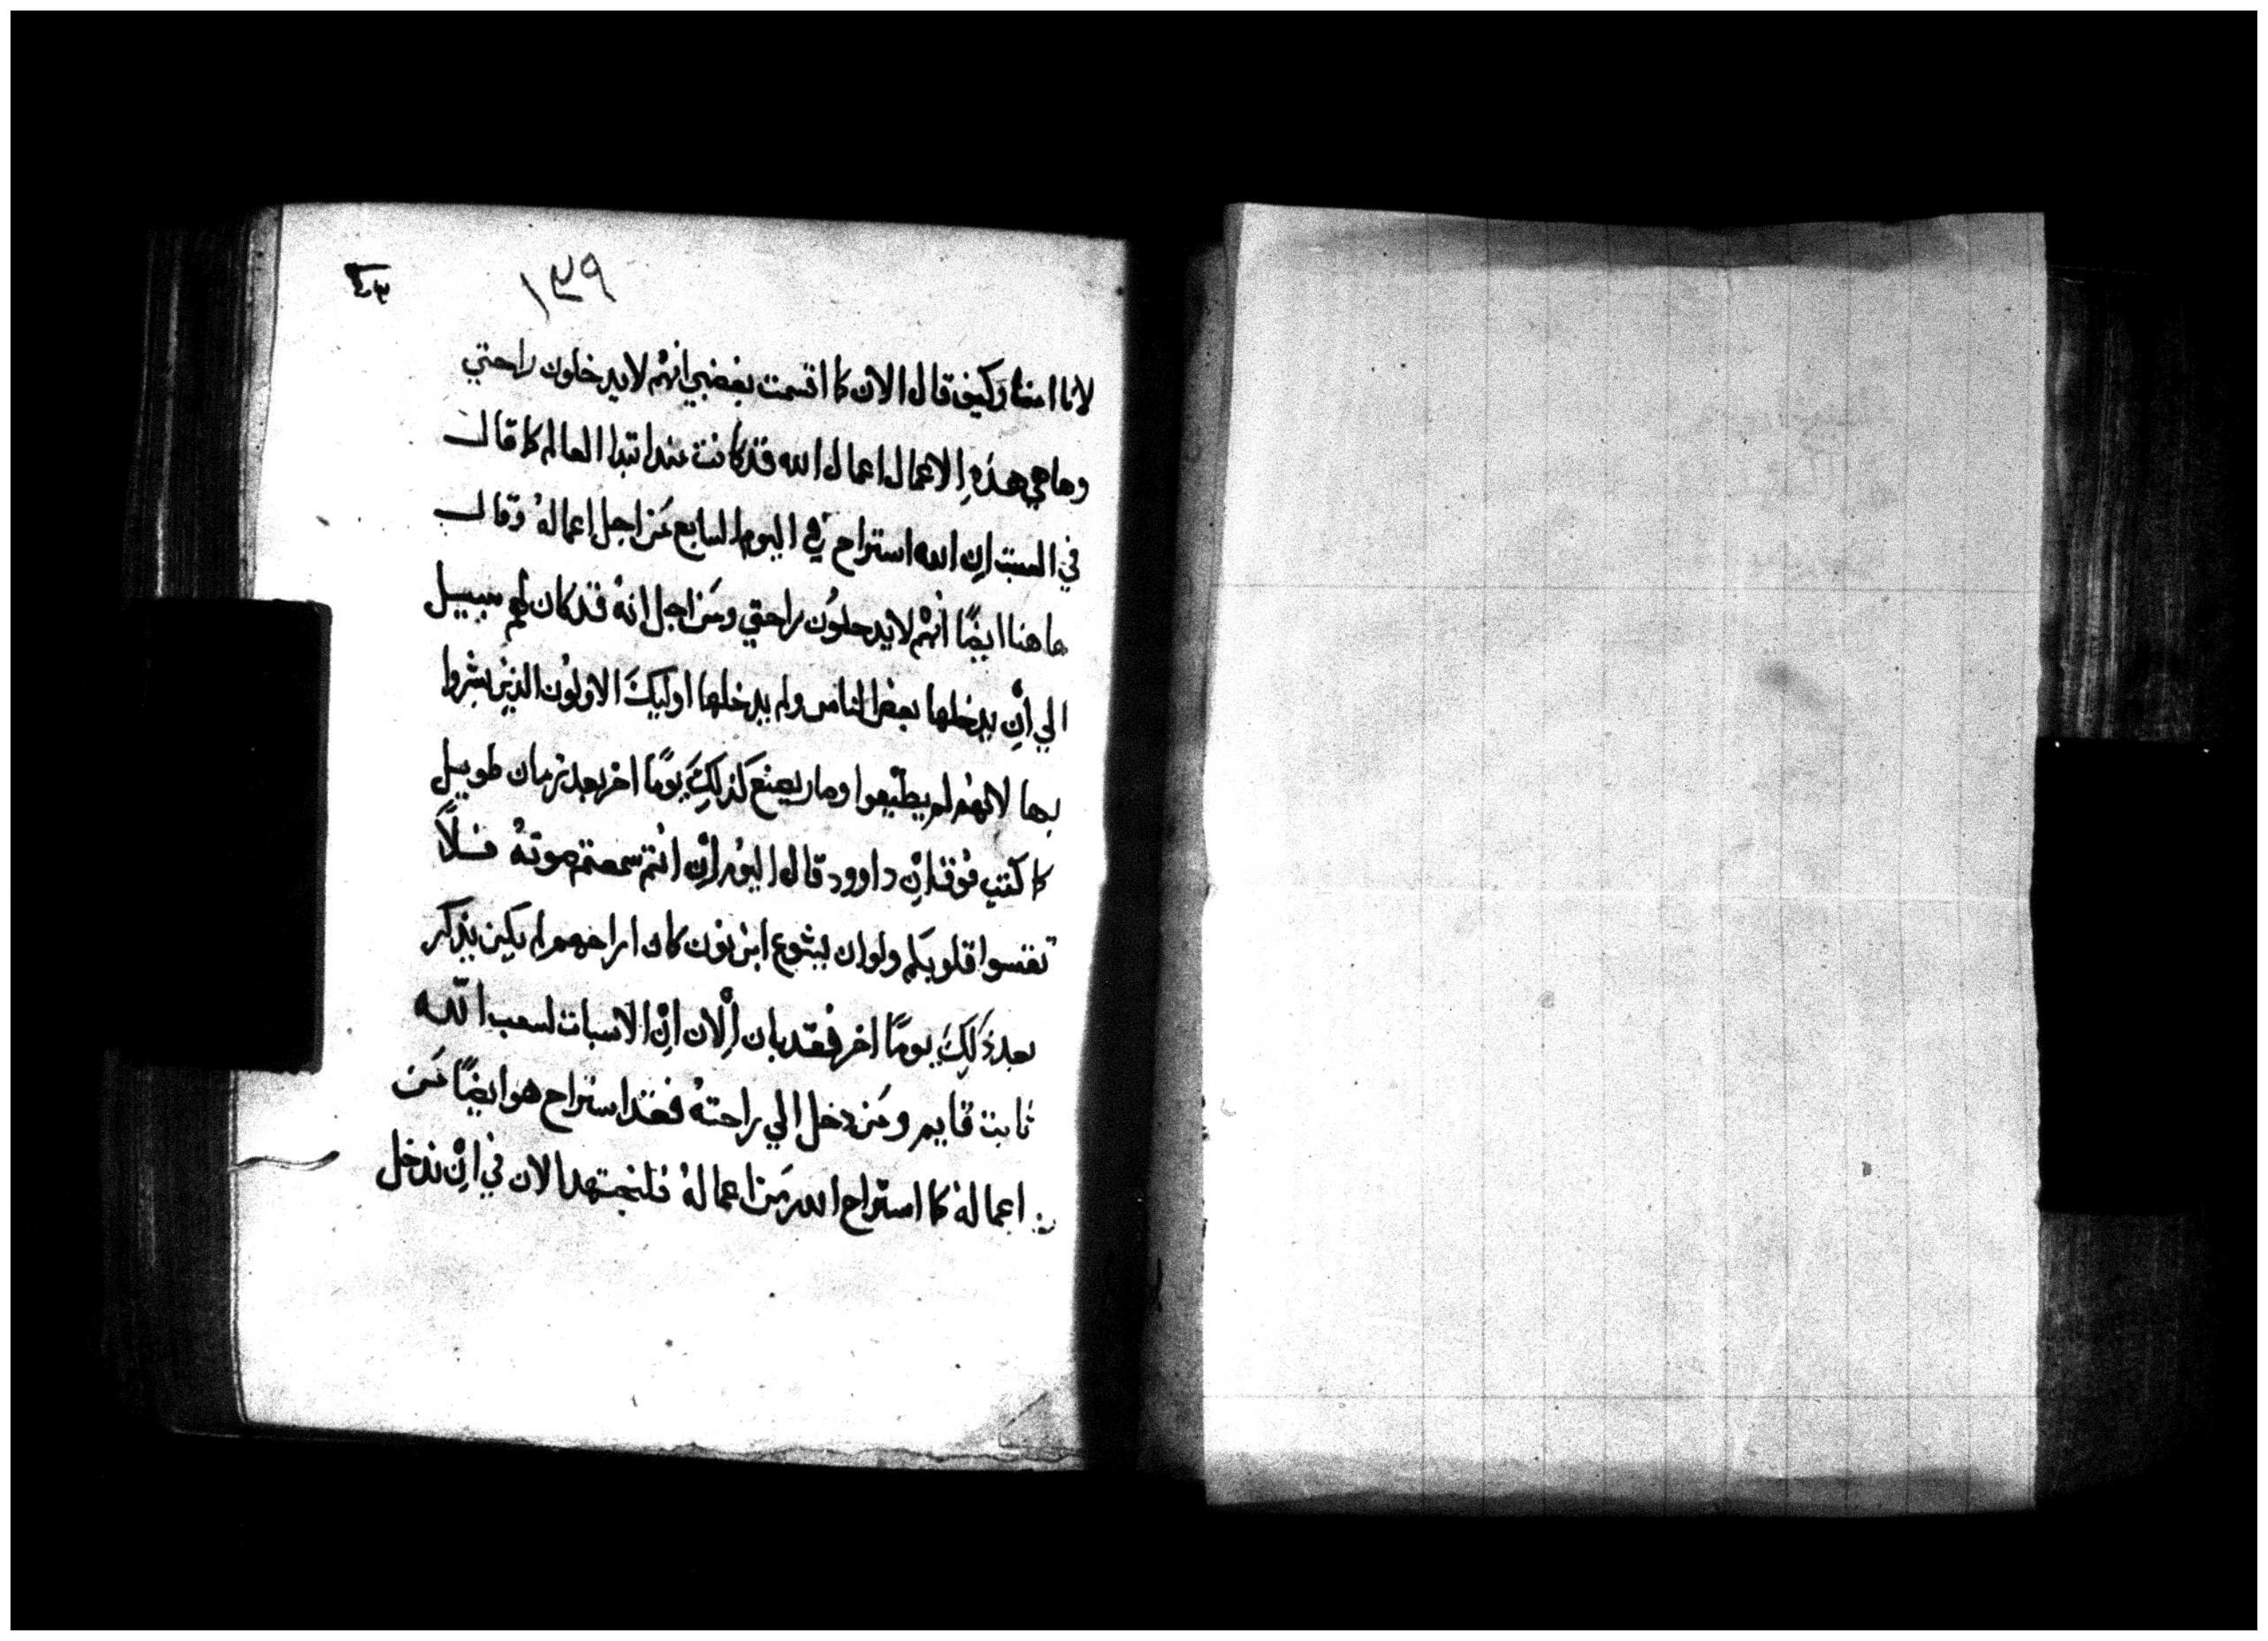 ١٣٩
لانا امنا وكيف قال الان كما اقسمت بغضبي انهم لا يدخلون راحتي
وها هي هذه الاعمال اعمال الله قد كانت منذ ابتدا العالم كما قال
في السبت ان الله استراح في اليوم السابع من اجل اعماله وقال
هاهنا ايضًا انهم لا يدخلون راحتي ومن اجل انه قد كان لهم سبيل
الي ان يدخلها بعض الناس ولم يدخلها اوليك الاولون الذين بشروا
بها لانهم لم يطيعوا وصار يصنع كذلك يومًا اخر بعد زمان طويل
كما كتب فوق ان داوود قال اليوم ان انتم سمعتم صوته فلا
تقسوا قلوبكم ولو ان يشوع ابن نون كان اراحهم لم يكن يذكر
بعد ذلك يومًا اخر فقد بان الان ان الاسبات لشعب الله
ثابت قايم ومن دخل الي راحته فقد استراح هو ايضًا من
اعماله كما استراح الله من اعماله فلنجتهد الان في ان ندخل